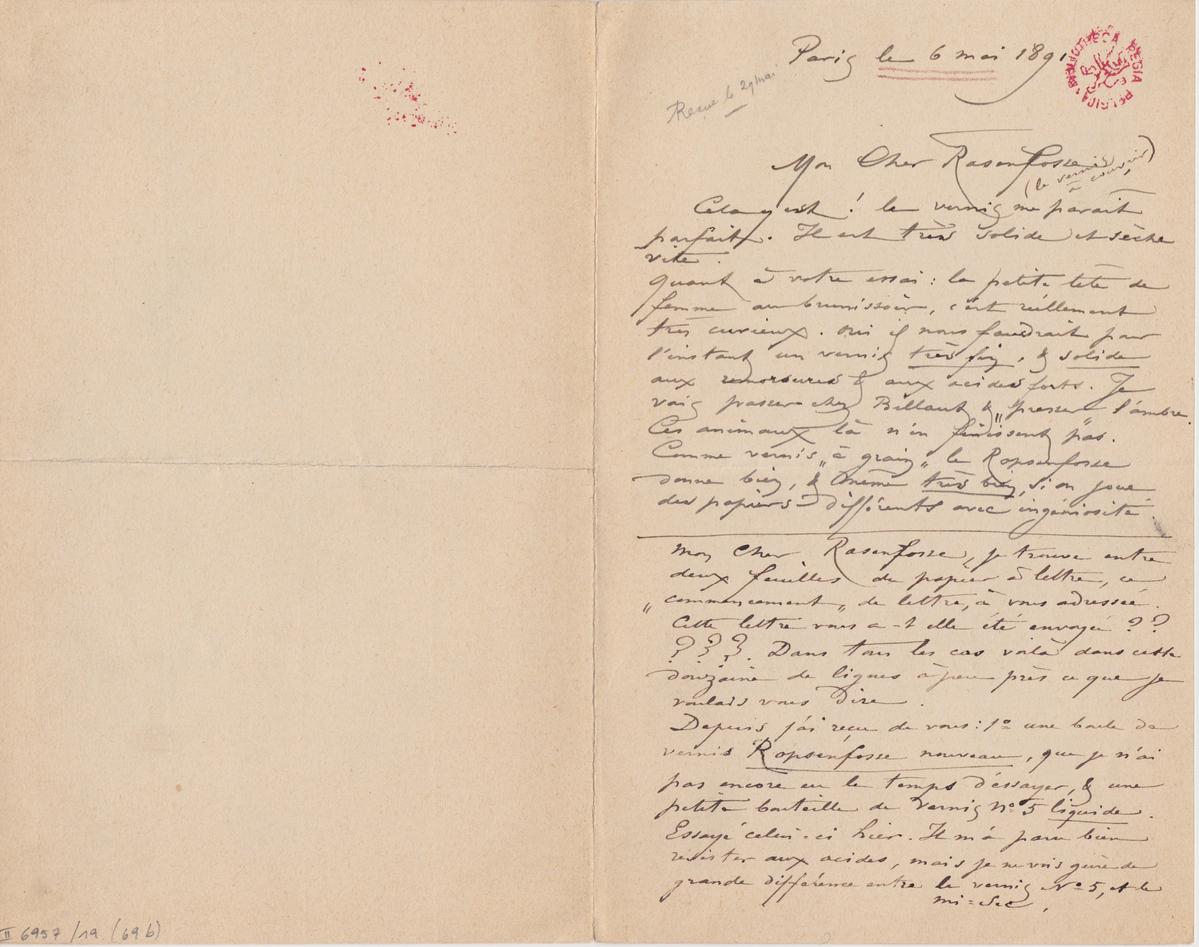 Paris le 6 mai 1891
Reçue le 29 mai
BIBLIOTHECA REGIA BELGICA
Mon Cher Rassenfosse
(le vernis
à couvrir)
Cela y est ! le vernis me parait
parfait. Il est très solide et sèche
vite.
Quant à votre essai : la petite tête de
femme au brunissoir, c'est réellement
très curieux. Oui il nous faudrait pour
l'instant un vernis très fin, & solide
aux remorsures & aux acides forts. Je
vais passer chez Billaut & „presser" l'ambre.
Ces animaux là n'en finissent pas.
Comme vernis „à grain„ le Ropsenfosse
donne bien, & même très bien, si on joue
des papiers différents avec ingéniosité.
Mon Cher Rassenfosse, je trouve entre
deux feuilles de papier à lettre, ce
„commencement„ de lettre, à vous adressée.
Cette lettre vous a-t elle été envoyée ??
???. Dans tous les cas voilà dans cette
douzaine de lignes à peu près ce que je
voulais vous dire.
Depuis j'ai reçu de vous : 1º une boule de
vernis Ropsenfosse nouveau, que je n'ai
pas encore eu le temps d'essayer, & une
petite bouteille de vernis nº 5 liquide.
Essayé celui-ci hier. Il m'a paru bien
résister aux acides, mais je ne vois guère de
grande différence entre le vernis Nº 5, et le
mi=sec,
II 6957/19 (69b)